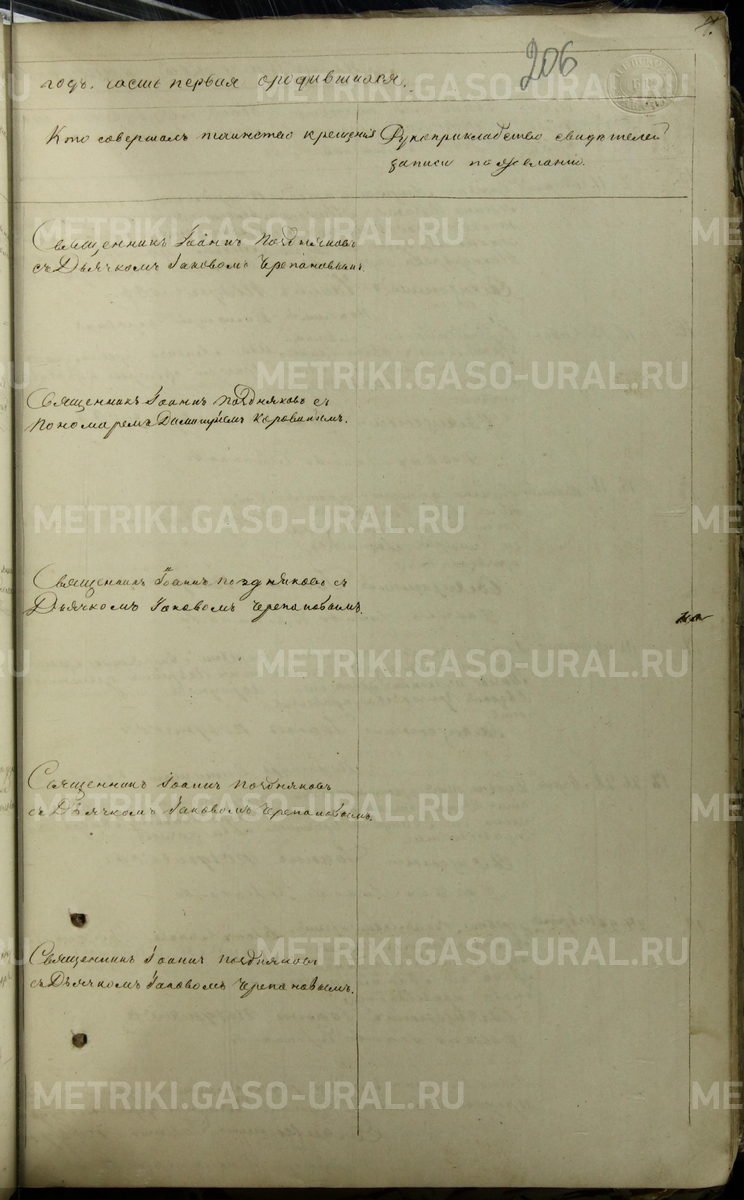 206
годъ. часть первая ородившихся.
Кто совершалъ таинство крещенія
Рукоприкладство свидѣтелей
записи по желанію.
Священникъ Іоаннъ Поздняковъ
съ Дьячкомъ Іаковомъ Черепановымъ.
Священникъ Іоаннъ Поздняковъ съ
Пономаремъ Димитріемъ Коровинымъ.
Священникъ Іоаннъ Поздняковъ съ
Дьячкомъ Іаковомъ Черепановымъ.
Священникъ Іоаннъ Поздняковъ
съ Дьячкомъ Іаковомъ Черепановымъ.
Священникъ Іоаннъ Поздняковъ
съ Дьячкомъ Іаковомъ Черепановымъ.
METRIKI.GASO-URAL.RU